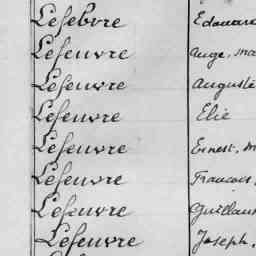 Lefebvre Edouard
Lefeuvre Ange, Ma
Lefeuvre Auguste
Lefeuvre Elie
Lefeuvre Ernest, M
Lefeuvre Francois,
Lefeuvre Guillaum
Lefeuvre Joseph,